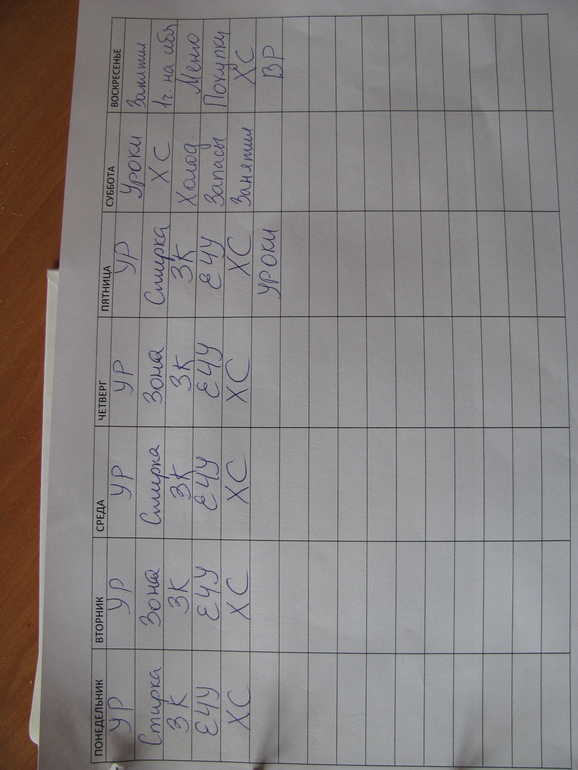 ПОНЕДЕЛЬНИК ВТОРНИК СРЕДА ЧЕТВЕРГ ПЯТНИЦА СУББОТА ВОСКРЕСЕНЬЕ
УР УР УР УР УР Уроки Занятия
Стирка Зона Стирка Зона Стирка ХС 1ч. на себя
ЗК ЗК ЗК ЗК ЗК Холод. Меню
ЕЧУ ЕЧУ ЕЧУ ЕЧУ ЕЧУ Запасы Покупки
ХС ХС ХС ХС ХС Занятия ХС
УРОКИ ВР